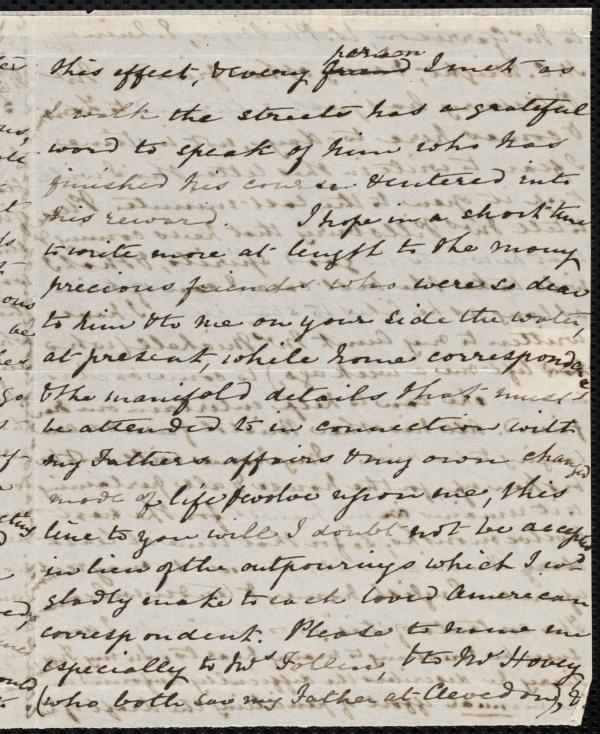 this effect, & every ~~friend~~ person I meet as
I walk the streets has a grateful
word to speak of him who has
finished his course & entered into
his reward. I hope in a short time
to write more at length to the many
precious friends who were so dear
to him & to me on your side the water,
at present, while home correspondence
& the manifold details that must
be attended to in connection with
my Father's affairs & my own changed
mode of life devolve upon me, this
line to you will I doubt not be accepted
in lieu of the outpourings which I wd
gladly make to each loved American
correspondent. Please to name me
especially to Mrs Follen, & to Mr Hovey
(who both saw my Father at Clevedon), &